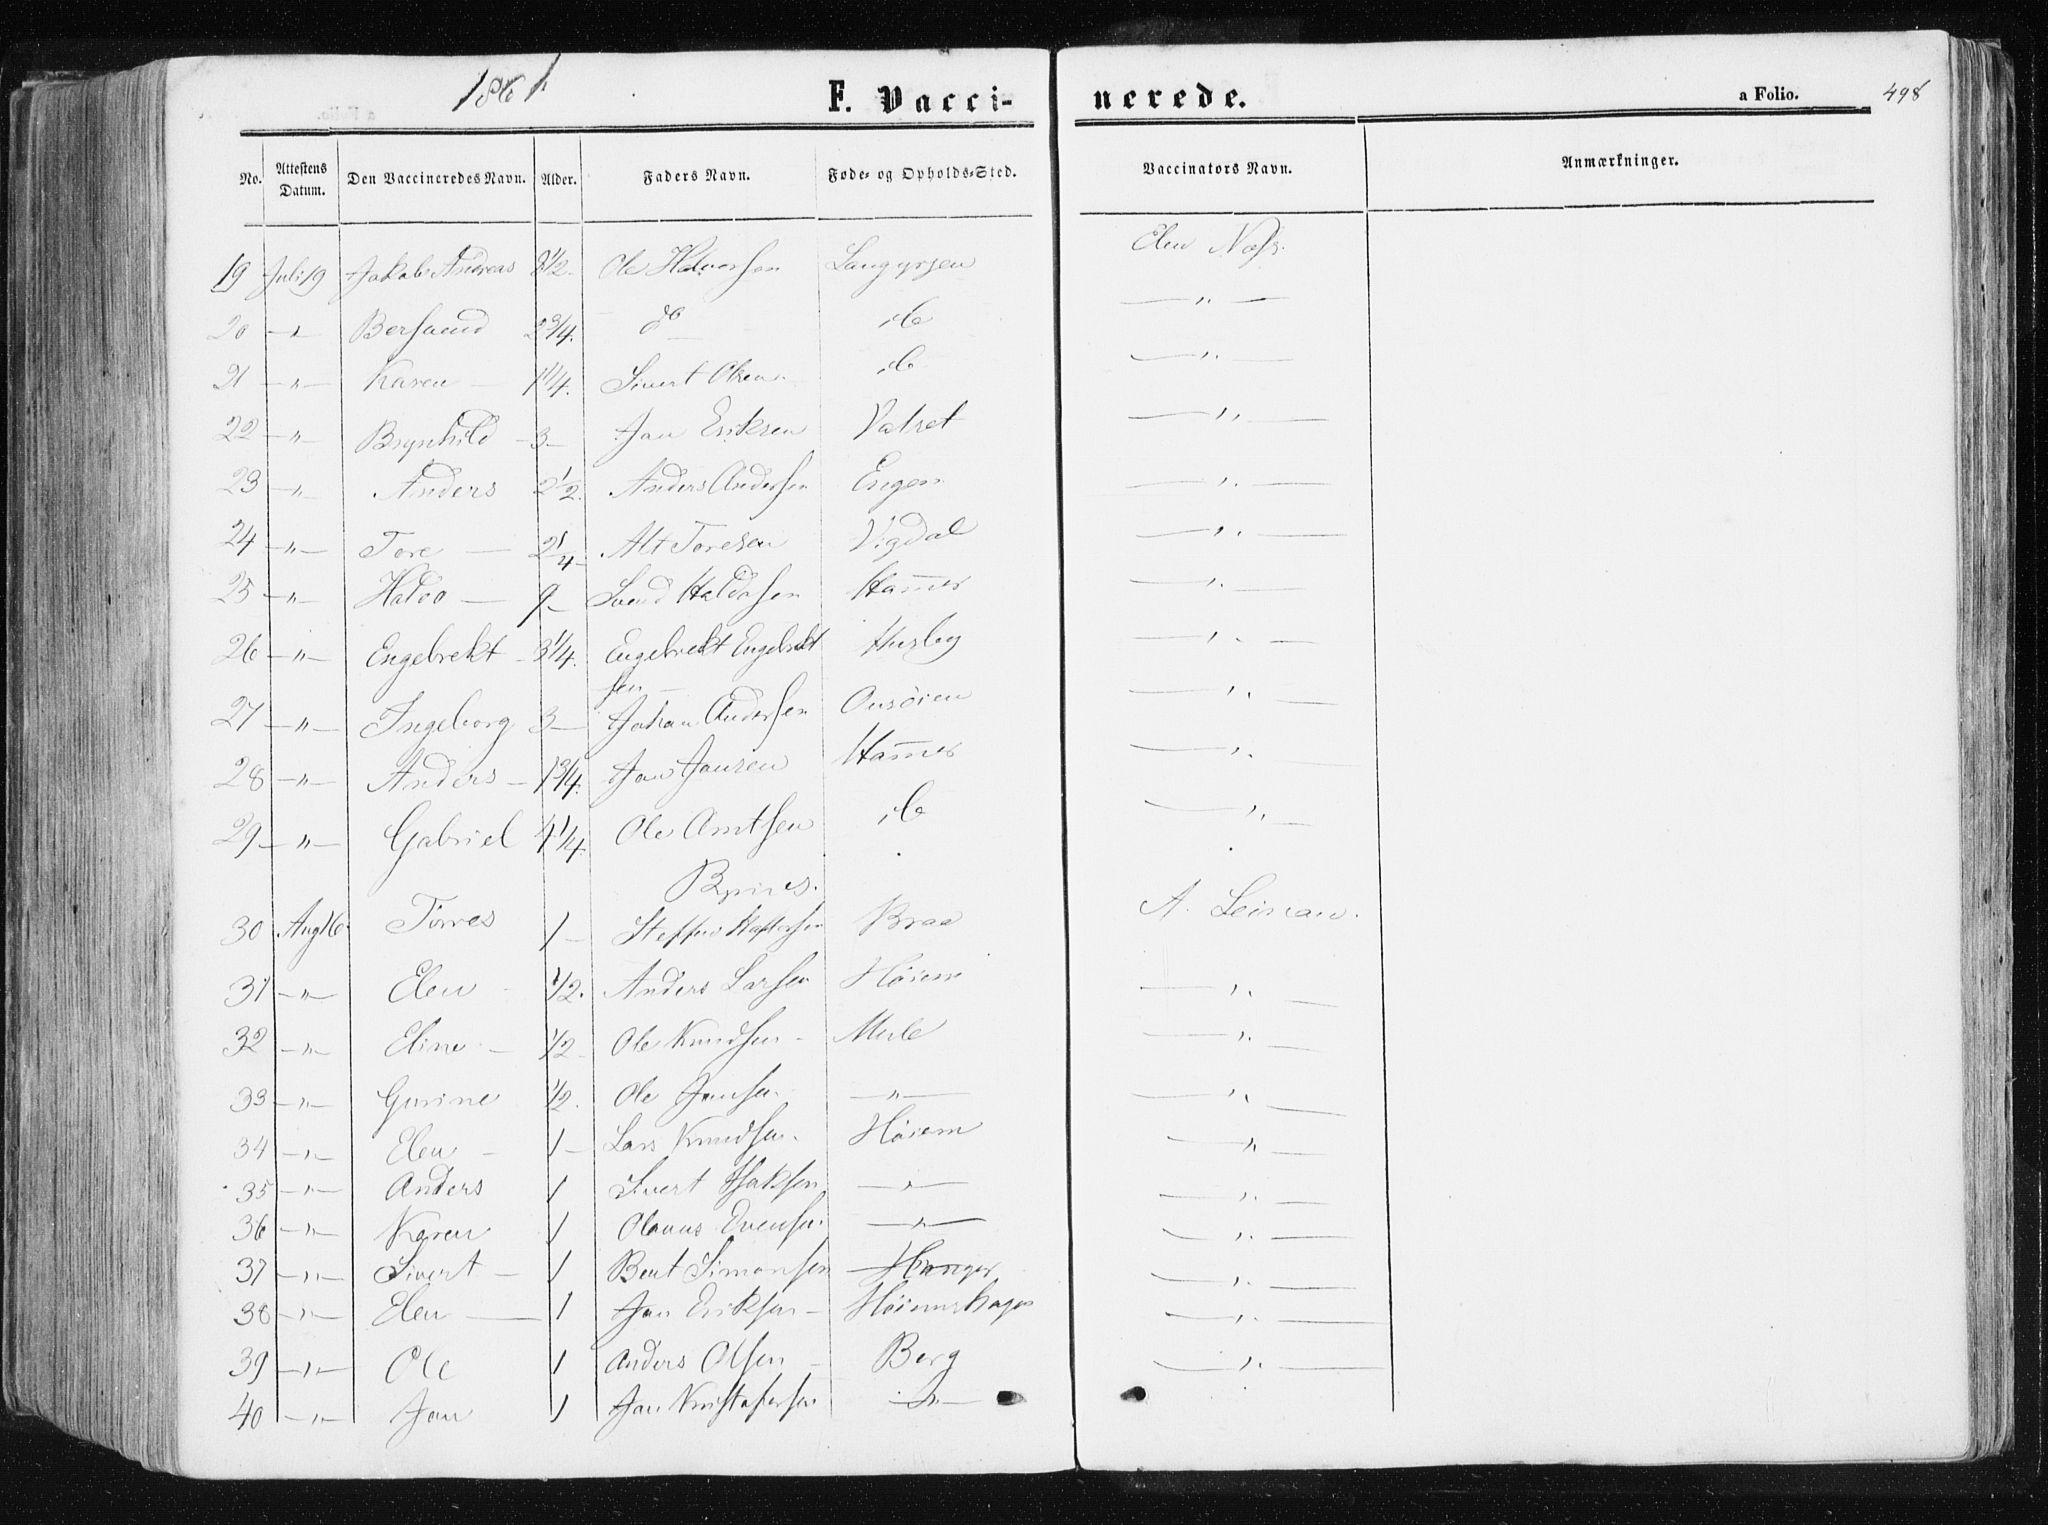 1861 F. Vacci- nerede. a Folio. 498
No. Attestens Datum. Den Vaccineredes Navn. Alder. Faders Navn. Føde- og Opholds-Sted. Vaccinators Navn. Anmærkninger.
19 Juli 19 Jakob Andreas 2 1/2. Ole Halvorsen Langørgen Elen Næss.
20 — " Bersvend 2 3/4. do — ib — " —
21 — " — Karen — 1 1/4. Sivert Olsen ib — " —
22 — " — Brynhild — 3 — Jan Eriksen Valset — " —
23 — " — Anders 2 1/2. Anders Andersen Engen — " —
24 — " — Tore — 2 1/4 — Alt Toresen Vigdal — " —
25 — " — Haldo — 9 — Svend Haldosen Ham̄er — " —
26 — " — Engebrekt — 3 1/4. Engebrekt Engebrekt Husby — " —
sen —
27 — " — Ingeborg 3 — Johan Andersen Onsøien — " —
28 — " — Anders — 1 3/4. Jan Jansen Ham̄er — " —
29 — " — Gabriel 4 1/4. Ole Arntsen ib — " —
Bynes.
30 Aug 16 Torres 1 — Steffen Braa A. Leinan.
31 — " — Elen 1/2. Anders Larsen Høiem — " —
32 — " — Eline — 1/2 Ole Knudsen — Mule — " —
33 — " — Gurine 1/2. Ole Jansen — " — — " —
34 — " — Elen — 1 — Lars Knudsen. Høiem — " —
35 — " — Anders 1 Sivert Isaksen — " — — " —
36 — " — Karen 1 Olaus Evensen — " — — " —
37 — " — Sivert — 1 Bent Simonsen Hanger — " —
38 — " — Elen — 1 Jan Eriksen — Høiemshagen — " —
39 — " — Ole 1 Anders Olsen — Berg — " —
40 — " — Jan 1 Jan Kristofersen — " —